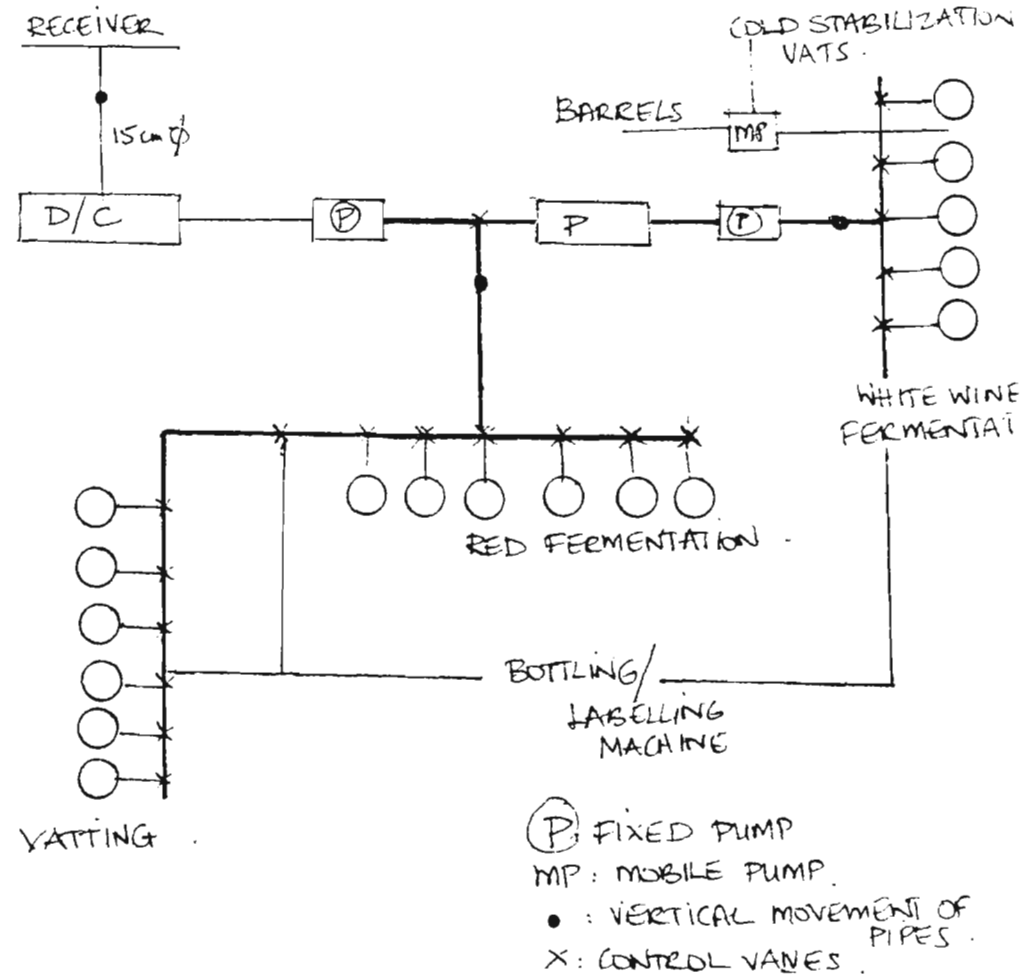 RECEIVER
COLD STABILIZATION
VATS.
BARRELS
MP
15cm ϕ
D/C
P
P
P
WHITE WINE
FERMENTAT
RED FERMENTATION.
BOTTLING/
LABELLING
MACHINE
VATTING.
P FIXED PUMP
MP: MOBILE PUMP.
•: VERTICAL MOVEMENT OF
PIPES.
X: CONTROL VANES.